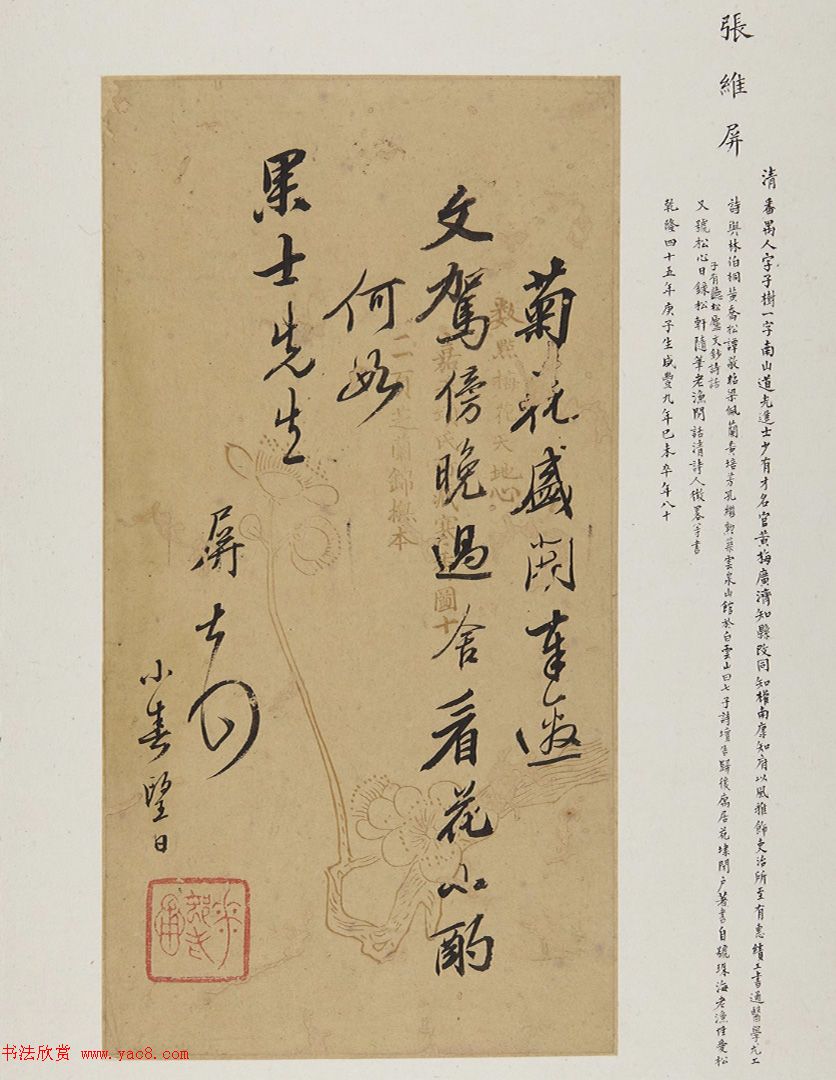 張維屏
清番禺人字子樹一字南山道光進士少有才名官黃梅廣濟知縣改同知權南康知府以風雅飾吏治所至有惠績工書通醫學尤工
詩與林伯桐黃喬松譚敬昭梁佩蘭黃培芳孔繼勳築雲泉山館於白雲山曰七子詩壇告歸後寓居花埭閉戶著書自號珠海老漁性愛松
又號松心日錄松軒隨筆老漁閒話清詩人徵畧等書
子有聽松廬文鈔詩話
乾隆四十五年庚子生咸豐九年己未卒年八十
菊花盛開奉邀
文駕傍晚過舍看花小酌
何如
果士先生
屏
小春望日
數點梅花天地心
二百芝蘭錦橅本
圖十
书法欣赏 www.yac8.com